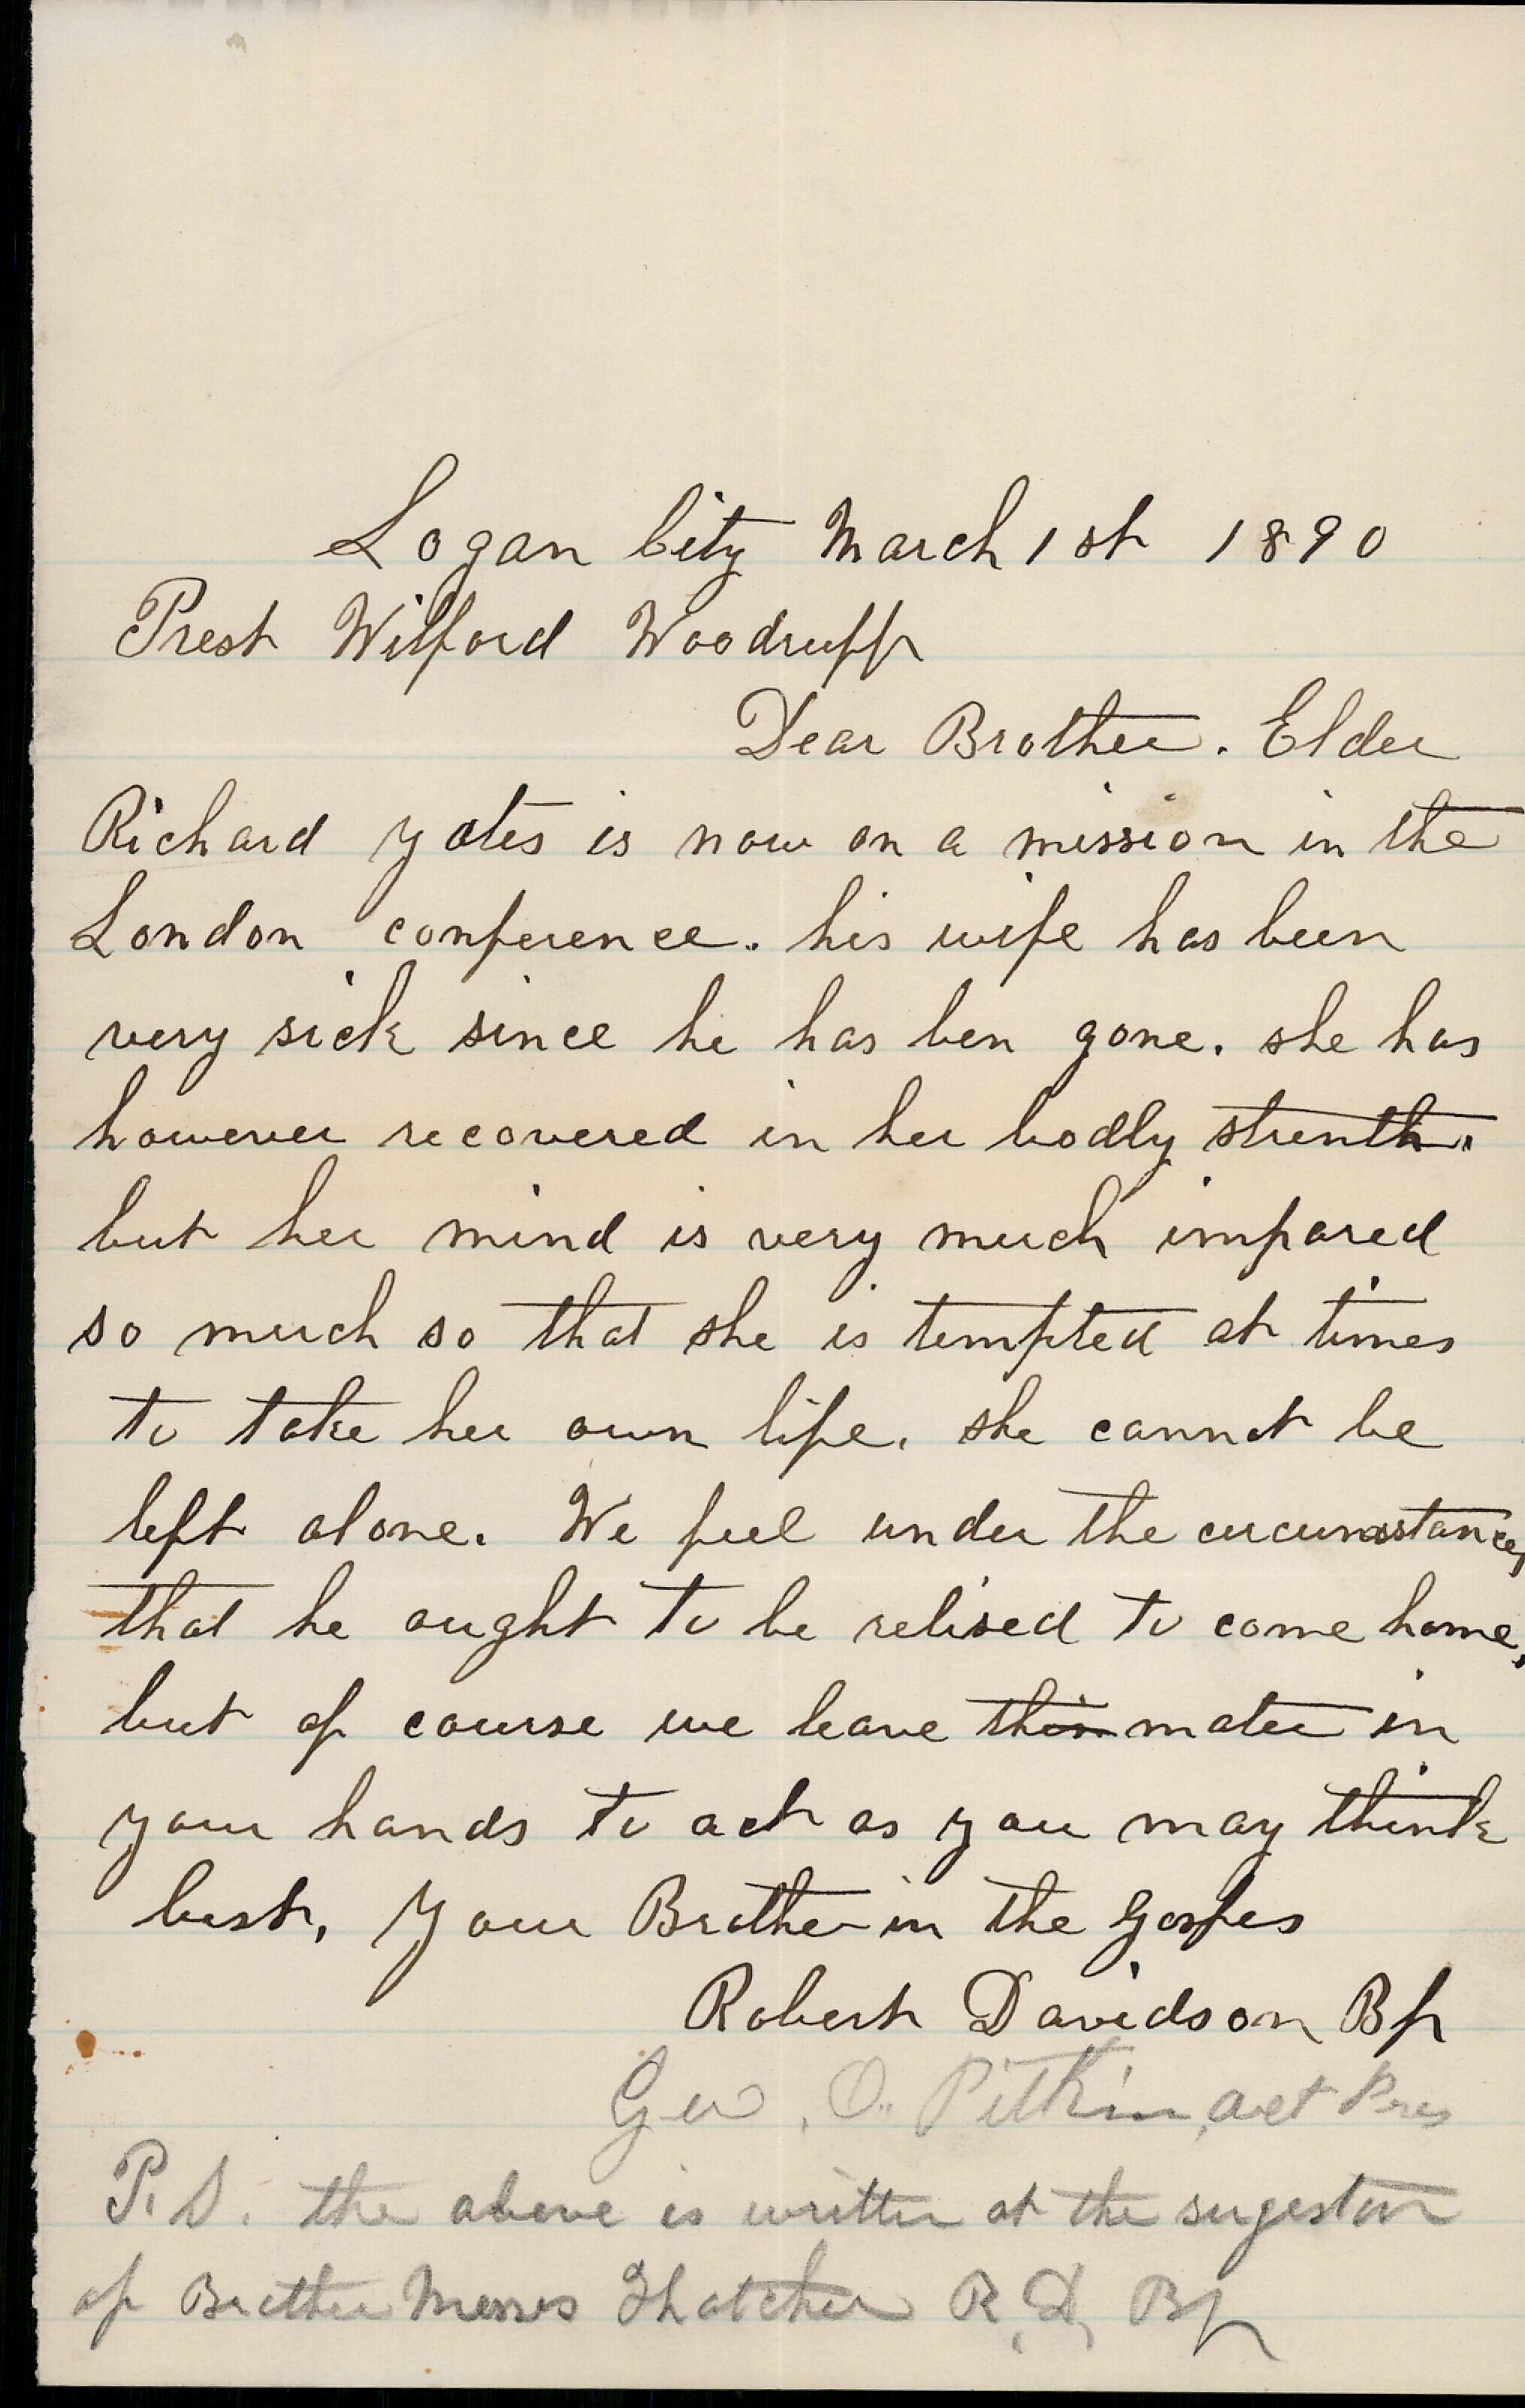 Logan City March 1st 1890
Prest Wilford Woodruff
Dear Brother. Elder
Richard Yates is now on a mission in the
London conference. his wife has been
very sick since he has ben gone. she has
however recovered in her bodly strenth.
but her mind is very much impared
so much so that she is tempted at times
to take her own life. she cannot be
left alone. We feel under the circumstances
that he ought to be relised to come home,
but of course we leave this mater in
your hands to act as you may think
best, Your Brother in the Gospes
Robert Davidson Bp
Geo. O. Pitkin, act Pres
P.S. the above is written at the sugestion
of Brother Moses Thatcher R. D, Bp